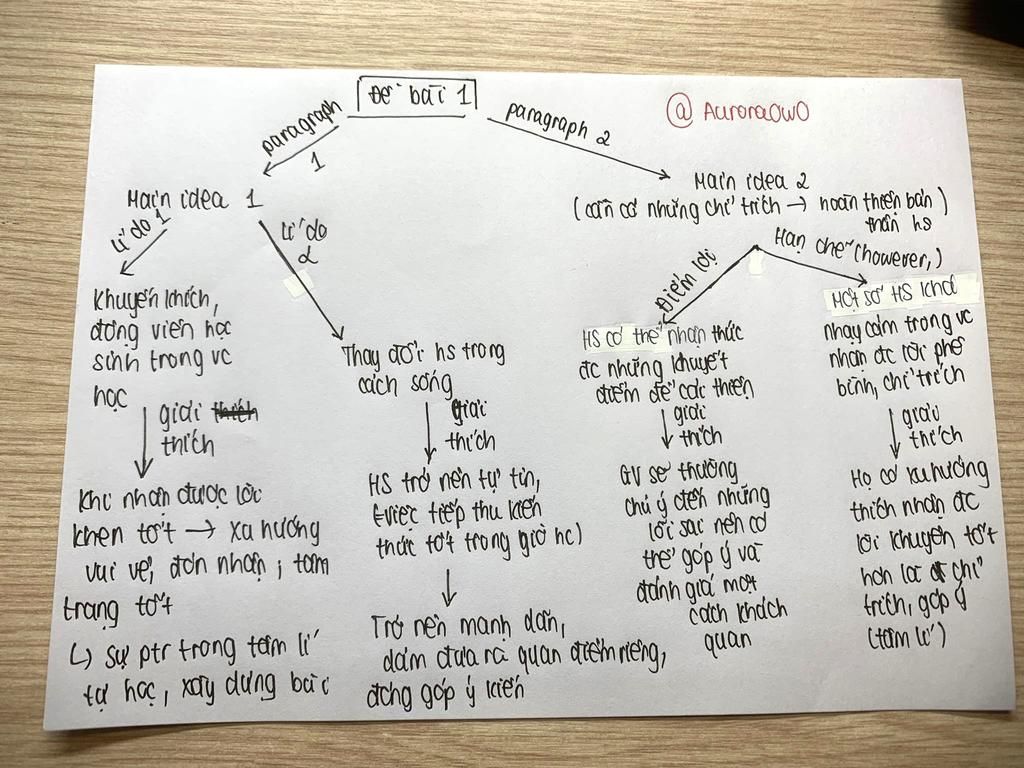 Đề bài 1
@ AuroraOwO
paragraph
1
paragraph 2
Main idea 1
Main idea 2
(cần có những chỉ trích → hoàn thiện bản
thân hs)
lí do 1
lí do
2
Điểm lợi
Hạn chế (however,)
Khuyến khích,
động viên học
sinh trong vc
học
giải thích
thích
Khi nhận được lời
khen tốt → xu hướng
vui vẻ, đón nhận, tâm
trạng tốt
↳ sự ptr trong tâm lí
tự học, xây dựng bài
Thay đổi hs trong
cách sống
giải
thích
HS trở nên tự tin,
(việc tiếp thu kiến
thức tốt trong giờ hc)
Trở nên mạnh dạn,
dám đưa ra quan điểm riêng,
đóng góp ý kiến
HS có thể nhận thức
đc những khuyết
điểm để cải thiện
giải
thích
GV sẽ thường
chú ý đến những
lỗi sai nên có
thể góp ý và
đánh giá một
cách khách
quan
Một số HS khá
nhạy cảm trong vc
nhận đc lời phê
bình, chỉ trích
giải
thích
Họ có xu hướng
thích nhận đc
lời khuyên tốt
hơn là chỉ
trích, góp ý
(tâm lí)